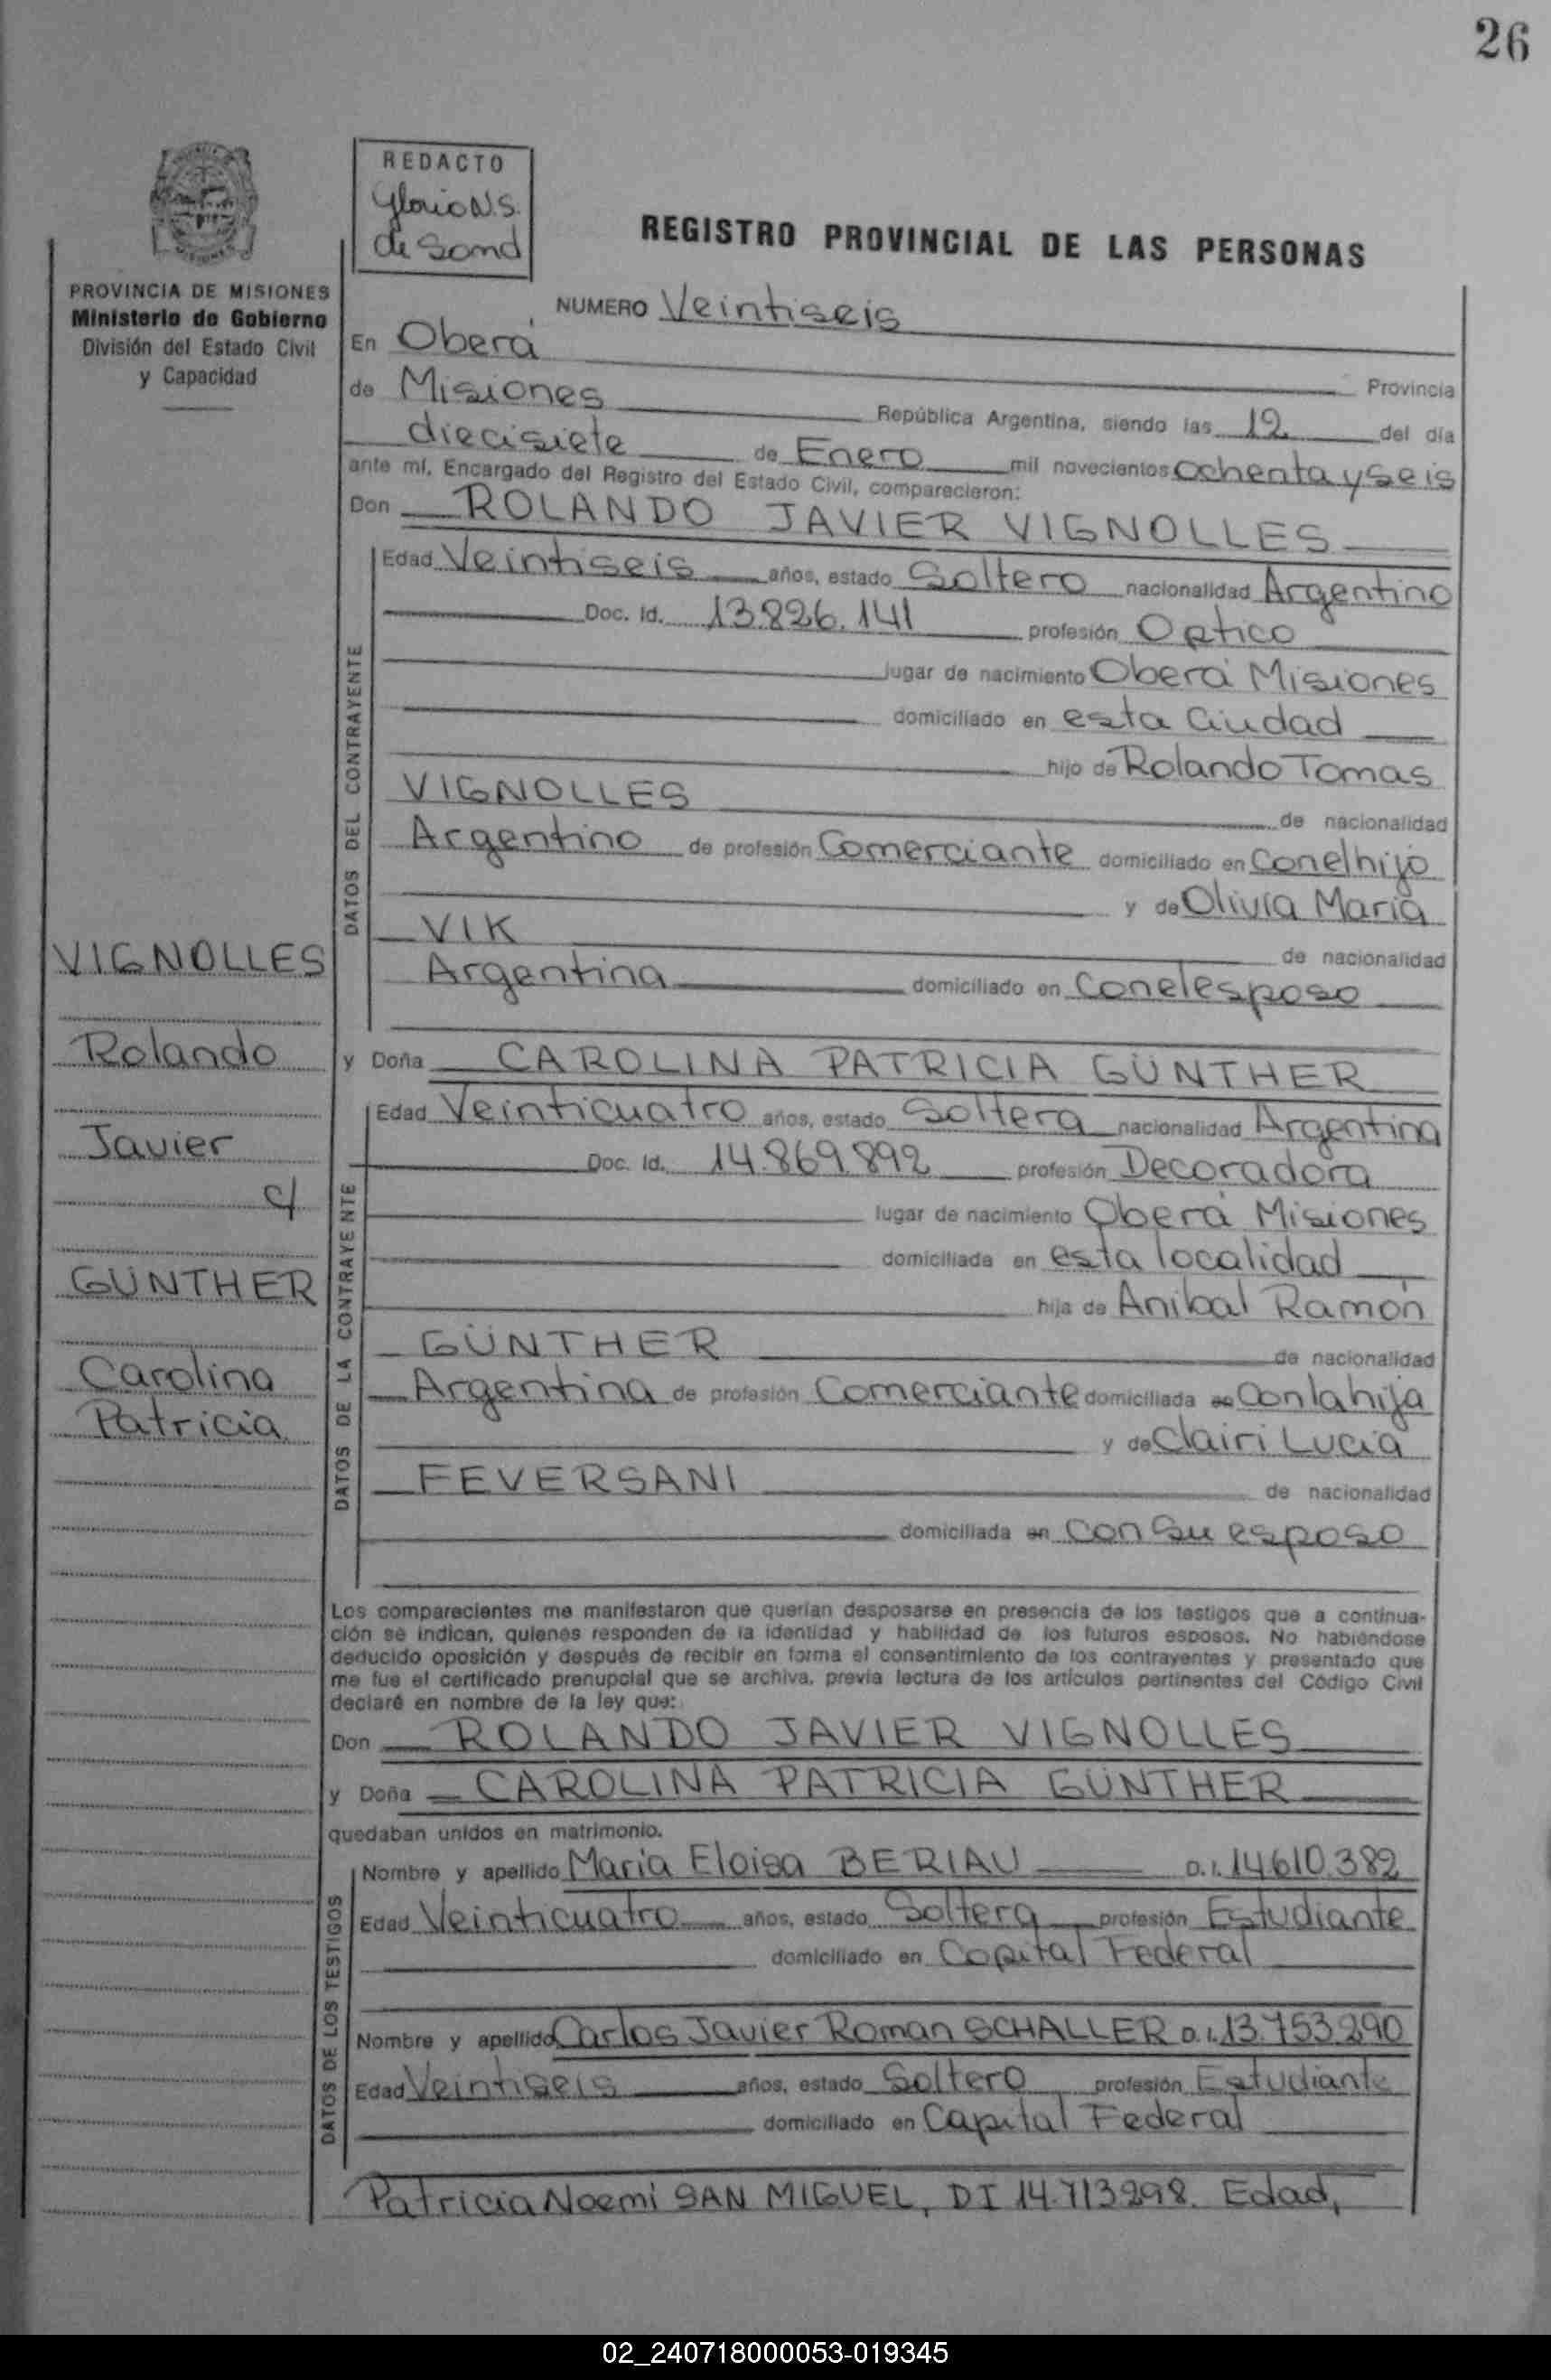 26
REDACTO
de Sand
REGISTRO PROVINCIAL DE LAS PERSONAS
PROVINCIA DE MISIONES
Ministerio de Gobierno
División del Estado Civil
y Capacidad
NUMERO Veintiseis
En Oberá Provincia
de Misiones República Argentina, siendo las 12 del día
diecisiete de Enero mil novecientos ochenta y seis
ante mí, Encargado del Registro del Estado Civil, comparecieron:
Don ROLANDO JAVIER VIGNOLLES
DATOS DEL CONTRAYENTE
Edad Veintiseis años, estado Soltero nacionalidad Argentino
Doc. Id. 13.826.141 profesión Optico
lugar de nacimiento Oberá Misiones
domiciliado en esta Ciudad
hijo de Rolando Tomas
VIGNOLLES de nacionalidad
Argentino de profesión Comerciante domiciliado en Con el hijo
y de Olivia Maria
VIK de nacionalidad
Argentina domiciliado en con el esposo
y Doña CAROLINA PATRICIA GÜNTHER
DATOS DE LA CONTRAYENTE
Edad Veinticuatro años, estado Soltera nacionalidad Argentina
Doc. Id. 14.869.892 profesión Decoradora
lugar de nacimiento Oberá Misiones
domiciliada en esta localidad
hija de Anibal Ramón
GÜNTHER de nacionalidad
Argentina de profesión Comerciante domiciliada en Con la hija
y de Clairi Lucia
FEVERSANI de nacionalidad
domiciliada en con su esposo
VIGNOLLES
Rolando
Javier
c/
GÜNTHER
Carolina
Patricia
Los comparecientes me manifestaron que querían desposarse en presencia de los testigos que a continua-
ción se indican, quienes responden de la identidad y habilidad de los futuros esposos. No habiéndose
deducido oposición y después de recibir en forma el consentimiento de los contrayentes y presentado que
me fue el certificado prenupcial que se archiva, previa lectura de los artículos pertinentes del Código Civil
declaré en nombre de la ley que:
Don ROLANDO JAVIER VIGNOLLES
y Doña CAROLINA PATRICIA GÜNTHER
quedaban unidos en matrimonio.
DATOS DE LOS TESTIGOS
Nombre y apellido Maria Eloisa BERIAU D.I. 14610.382
Edad Veinticuatro años, estado Soltera profesión Estudiante
domiciliado en Capital Federal
Nombre y apellido Carlos Javier Roman SCHALLER D.I. 13.753.290
Edad Veintiseis años, estado Soltero profesión Estudiante
domiciliado en Capital Federal
Patricia Noemi SAN MIGUEL, DI 14.713298. Edad,
02_240718000053-019345